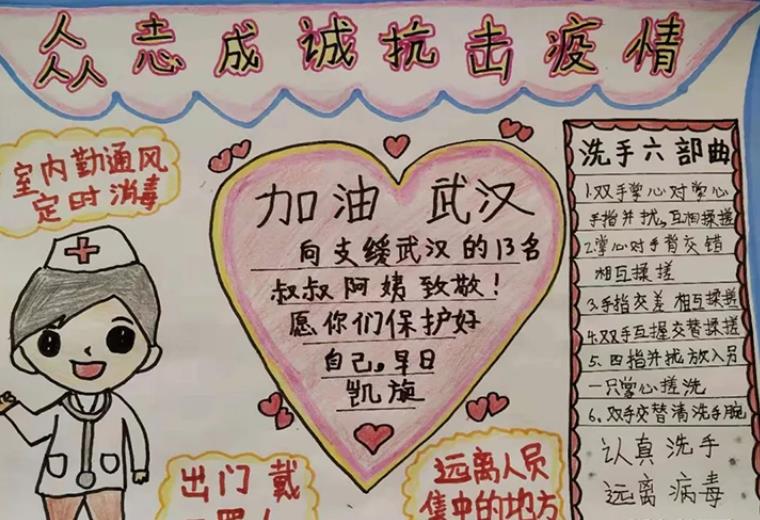 众志成诚抗击疫情
室内勤通风
定时消毒
加油 武汉
向支缓武汉的13名
叔叔阿姨致敬!
愿你们保护好
自己。早日
凯旋
出门戴
远离人员
集中的地方
洗手六部曲
1.双手掌心对掌心
手指并扰,互相揉搓
2.掌心对手背交错
相互揉搓
3.手指交差 相互揉搓
4.双手互握交替揉搓
5.四指并扰放入员
一只掌心搓洗
6.双手交替清洗手腕
认真洗手
远离病毒